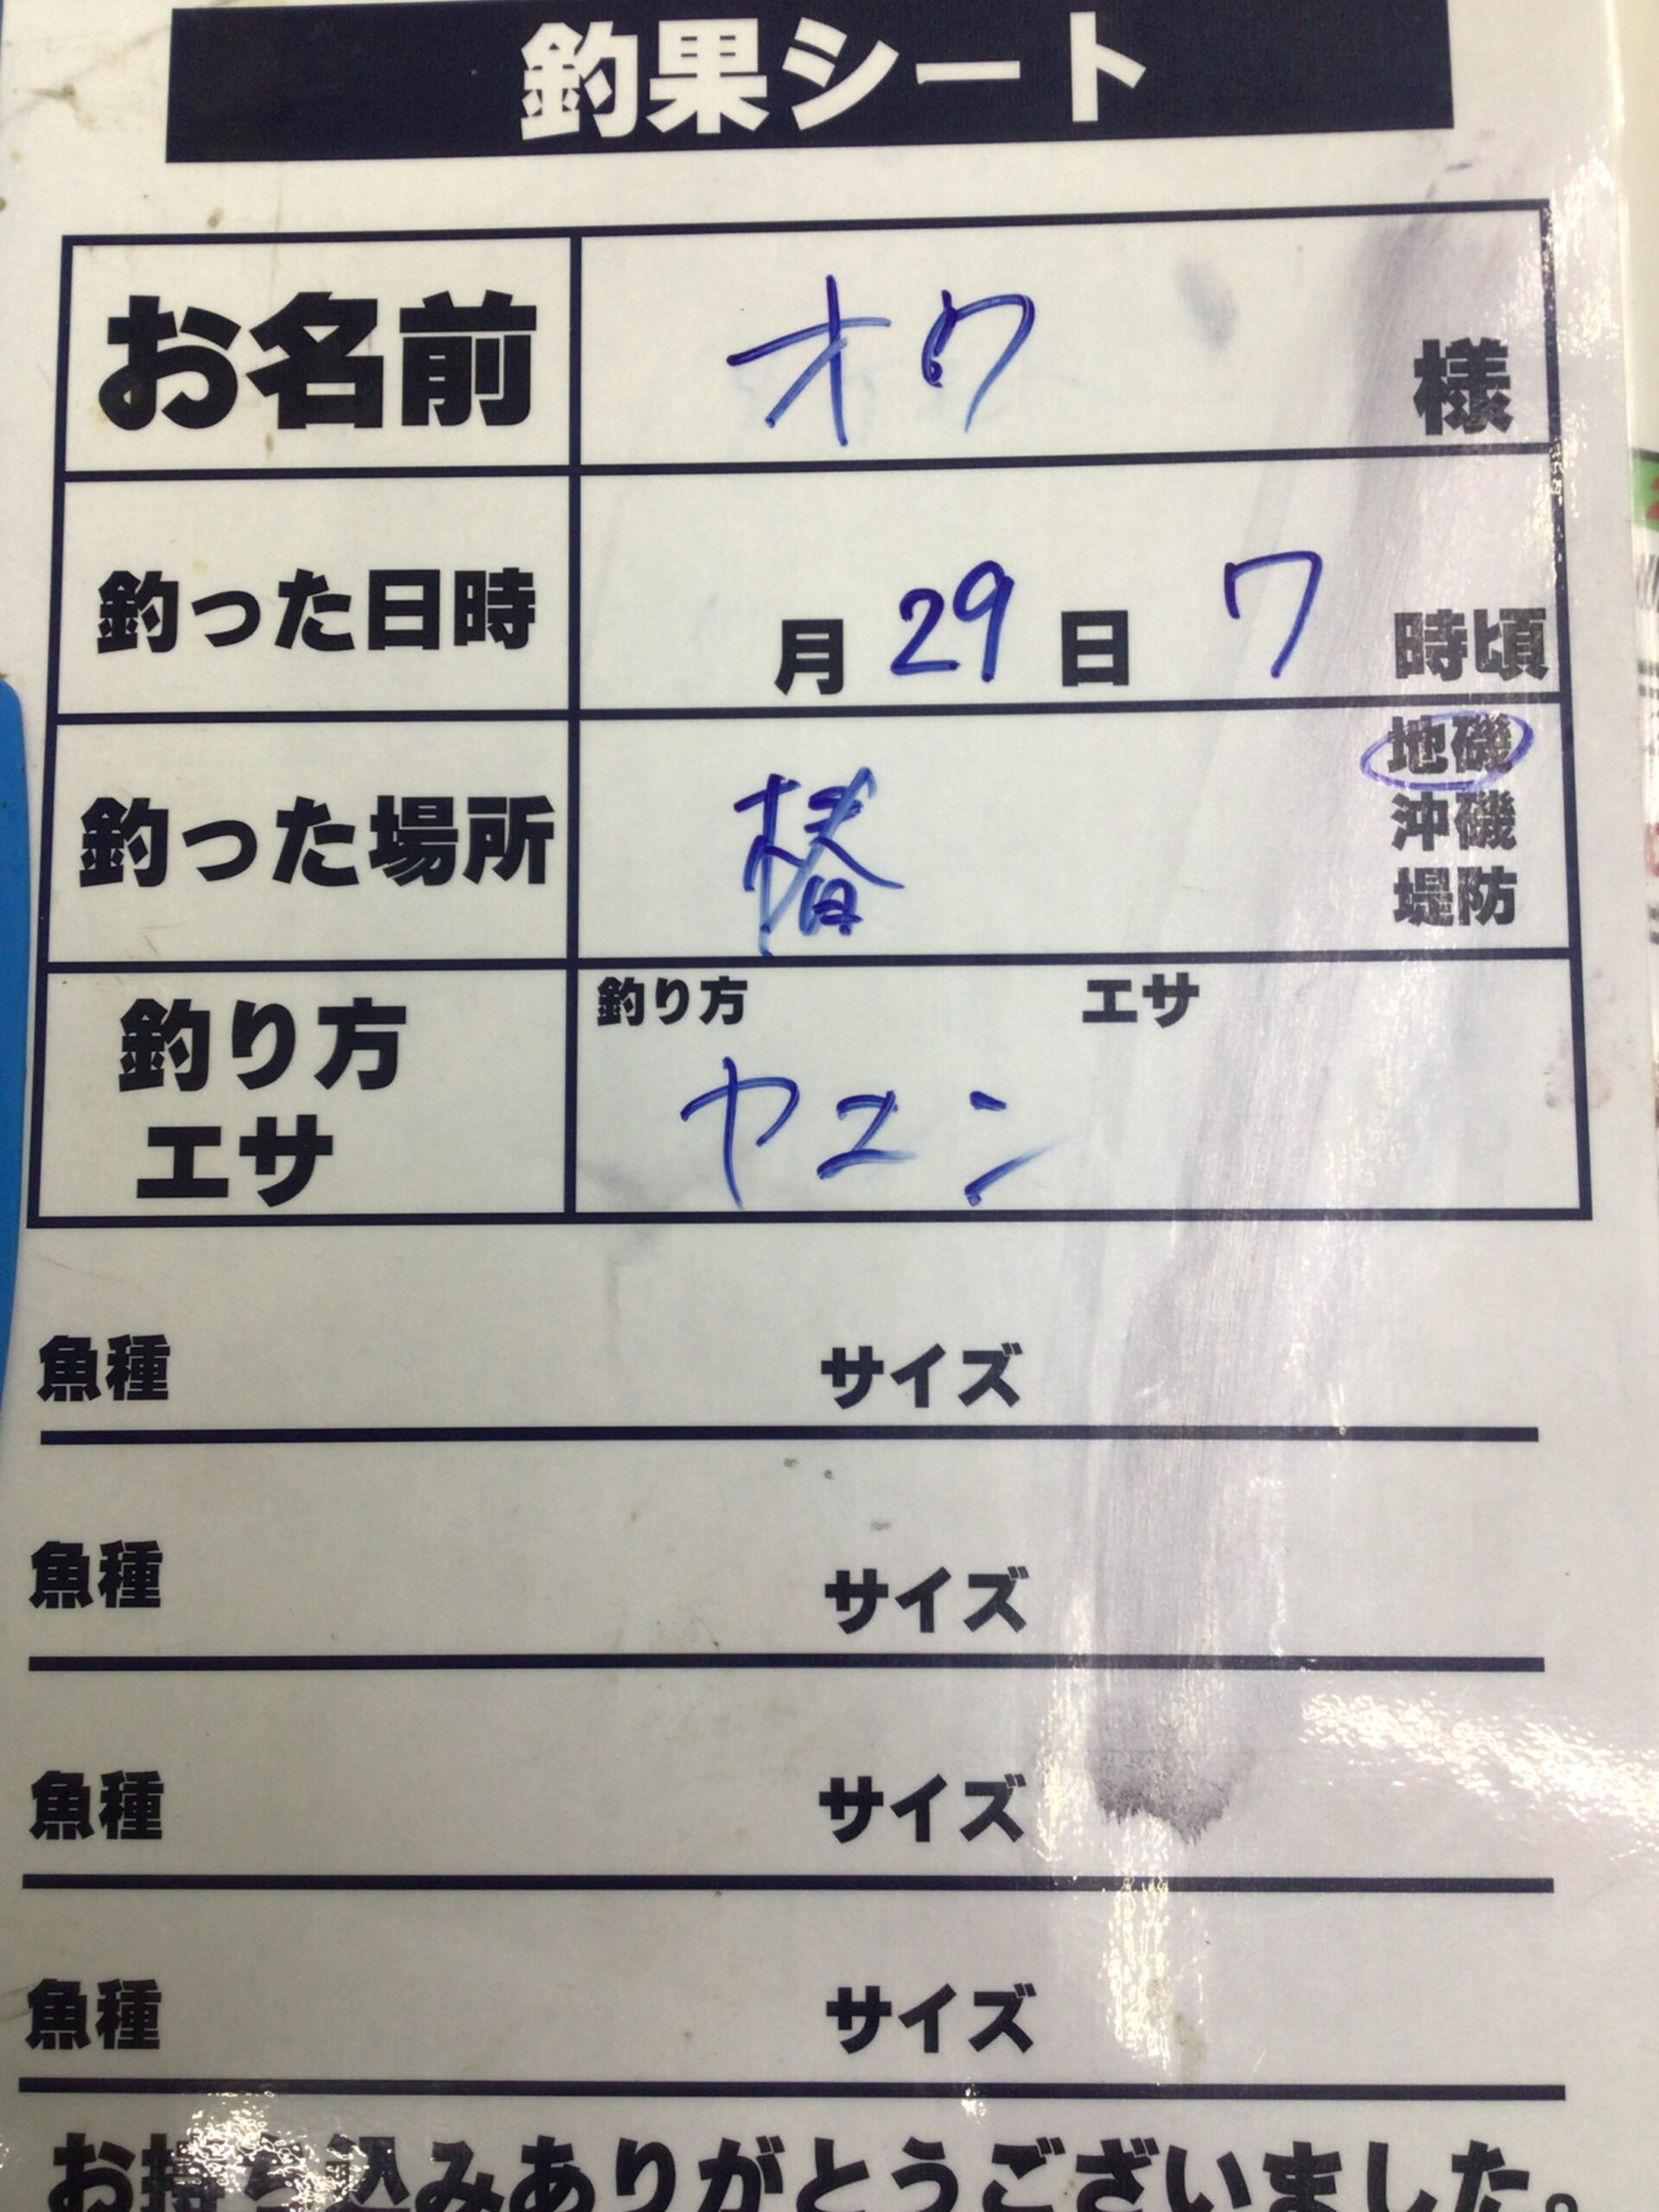 釣果シート
お名前 オワ 様
釣った日時 月 29 日 7 時頃
釣った場所 椿 地磯
沖磯
堤防
釣り方 エサ
釣り方
エサ
ヤエン
魚種 サイズ
魚種 サイズ
魚種 サイズ
魚種 サイズ
お持ち込みありがとうございました。